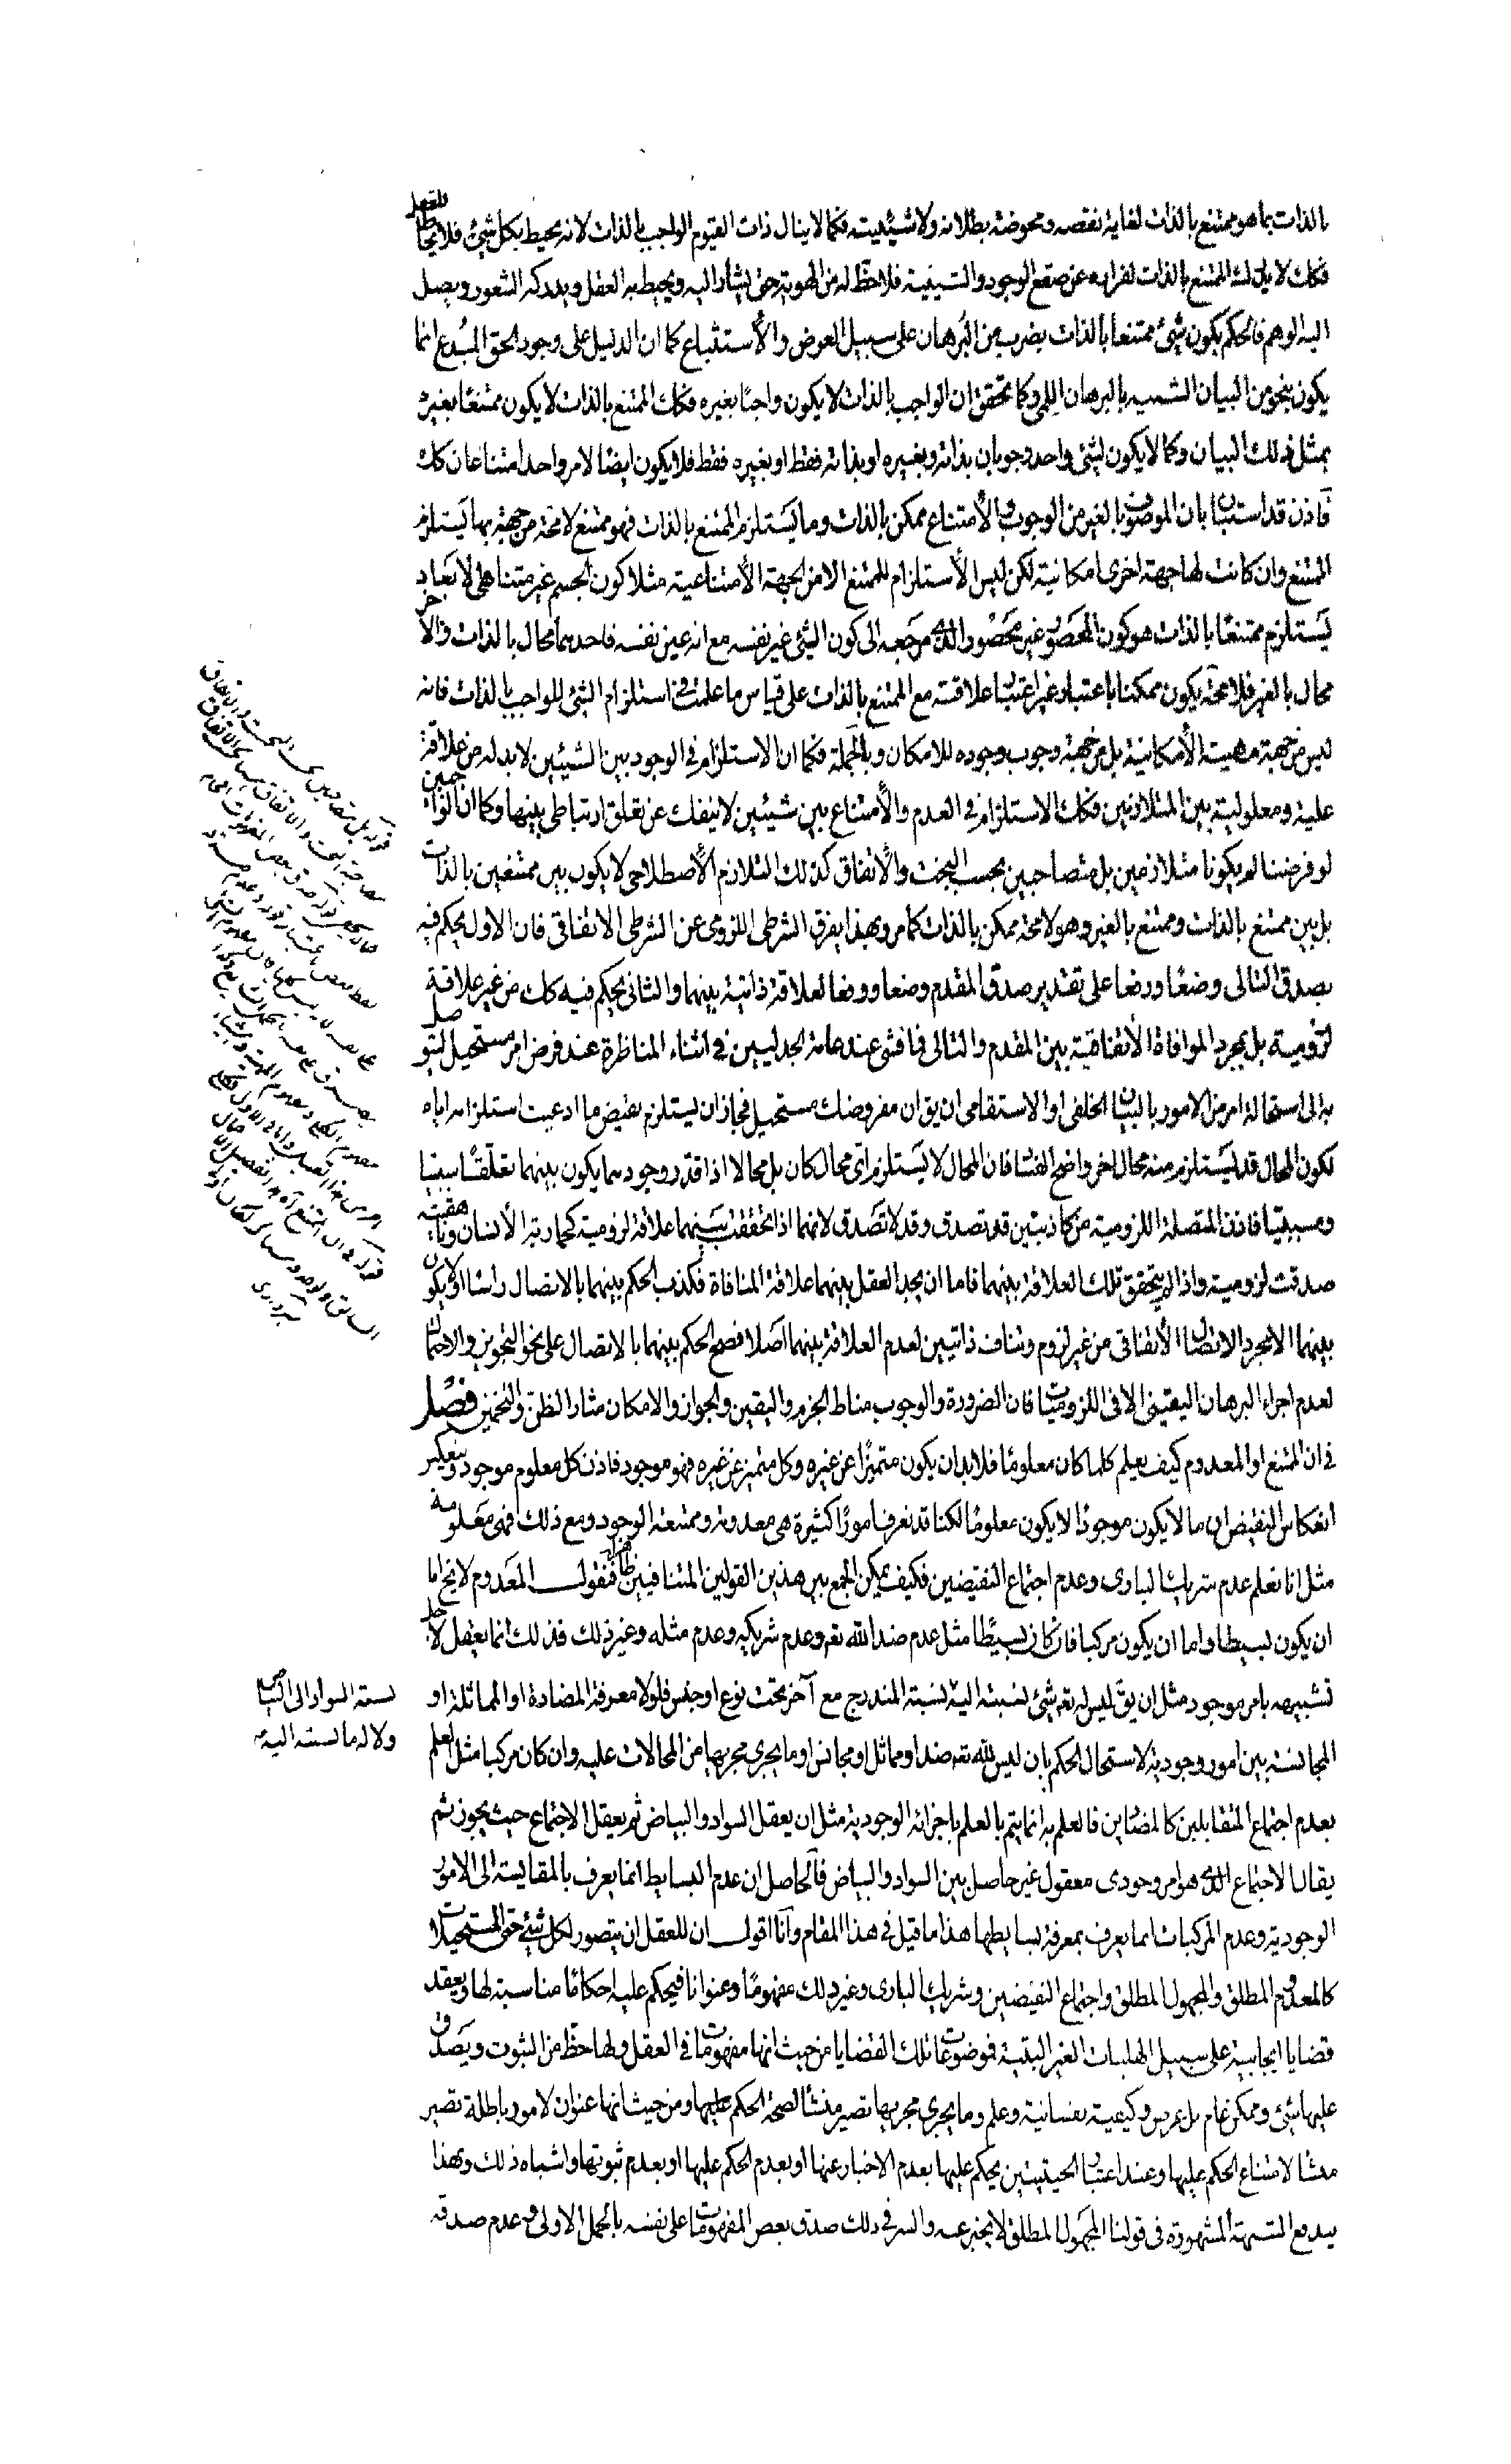 بالذات بما هو ممتنع بالذات لغاية نقصه ومحوضة بطلانه ولا شيئيته فكما لا ينال ذات القيوم الواجب بالذات لانه محيط بكل شيئ فلا يحاط للعقل
فكك لا يدرك الممتنع بالذات لفراره عن صقع الوجود والشيئية فلا حظّ له من الهوية حتى يشار اليه ويحيط به العقل ويدركه الشعور ويصل
اليه الوهم فالحكم بكون شيئ ممتنعا بالذات بضرب من البرهان على سبيل العرض والاستتباع كما ان الدليل على وجود الحق المبدع انما
يكون بنحو من البيان الشبيه بالبرهان اللمى وكما تحقق ان الواجب بالذات لا يكون واجبا بغيره فكك الممتنع بالذات لا يكون ممتنعا بغيره
بمثل ذلك البيان وكما لا يكون لشئ واحد وجوبان بذاته وبغيره او بذاته فقط او بغيره فقط فلا يكون ايضا لامر واحد امتناعان كك
فاذن قد استبان ان الموصوف بالغير من الوجوب والامتناع ممكن بالذات وما يستلزم الممتنع بالذات فهو ممتنع لا محة من جهة بها يستلزم
الممتنع وان كانت لها جهة اخرى امكانية لكن ليس الاستلزام للممتنع الا من الجهة الامتناعية مثلا كون الجسم غير متناهى الابعاد
يستلزم ممتنعا بالذات هو كون المحصور غير محصور الذى مرجعه الى كون الشيئ غير نفسه مع انه عين نفسه فاحدهما محال بالذات والآخر
محال بالغير فلا محة يكون ممكنا باعتبار غير اعتبار علاقته مع الممتنع بالذات على قياس ما علمت فى استلزام الشئ للواجب بالذات فانه
ليس من جهة مهيته الامكانية بل من جهة وجوب وجوده الامكانى وبالجملة فكما ان الاستلزام فى الوجود بين الشيئين لا بد له من علاقة
علية ومعلولية بين المتلازمين فكك الاستلزام فى العدم والامتناع بين شيئين لا ينفك عن تعلق ارتباطى بينهما وكما ان الواجبين
لو فرضنا لم يكونا متلازمين بل متصاحبين بحسب البخت والاتفاق كذلك التلازم الاصطلاحى لا يكون بين ممتنعين بالذات
بل بين ممتنع بالذات وممتنع بالغير وهو لا محة ممكن بالذات كما مر وبهذا يفرق الشرطى اللزومى عن الشرطى الاتفاقى فان الاول يحكم فيه
بصدق التالى وضعا ورفعا على تقدير صدق المقدم وضعا ورفعا لعلاقة ذاتية بينهما والثانى يحكم فيه كك من غير علاقة
لزومية بل بمجرد الموافاة الاتفاقية بين المقدم والتالى فما فشى عند عامة الجدليين فى اثناء المناظرة عند فرض امر مستحيل ليتوصل
به الى استحالة امر من الامور بالبيان الخلفى او الاستقامى ان يق ان مفروضك مستحيل فجاز ان يستلزم نقيض ما ادعيت استلزامه اياه
لكون المحال قد يستلزم منه محال اخر واضح الفساد فان المحال لا يستلزم اى محال كان بل محالا اذا قدر وجودهما يكون بينهما تعلقا سببيا
ومسببيا فاذن المتصلة اللزومية من كاذبتين قد تصدق وقد لا تصدق لانهما اذا تحققت بينهما علاقة لزومية كحمارية الانسان وناهقيته
صدقت لزومية واذا لم يتحقق تلك العلاقة بينهما فاما ان يجد العقل بينهما علاقة المنافاة فكذب الحكم بينهما بالاتصال راسا او لا يكون
بينهما الا مجرد الاتصال الاتفاقى من غير لزوم وتناف ذاتيين لعدم العلاقة بينهما اصلا فصح الحكم بينهما بالاتصال على نحو التجويز والاحتمال
لعدم اجراء البرهان اليقينى الا فى اللزوميات فان الضرورة والوجوب مناط الجزم واليقين والجواز والامكان مثار الظن والتخمين فصل
فى ان الممتنع او المعدوم كيف يعلم كلما كان معلوما فلا بد ان يكون متميزا عن غيره وكل متميز عن غيره فهو موجود فاذن كل معلوم موجود وينعكس
انعكاس النقيض ان ما لا يكون موجودا لا يكون معلوما لكنا قد نعرف امورا كثيرة هى معدومة وممتنعة الوجود ومع ذلك فهى معلومة
مثل انا نعلم عدم شريك البارى وعدم اجتماع النقيضين فكيف يمكن الجمع بين هذين القولين المتنافيين ظاهرا فنقول المعدوم لا يخ اما
ان يكون بسيطا واما ان يكون مركبا فان كان بسيطا مثل عدم ضد الله تعه وعدم شريكه وعدم مثله وغير ذلك فذلك انما يعقل لاجل
تشبيهه بامر موجود مثل ان يق ليس له تعه شئ نسبته اليه نسبة المندرج مع آخر تحت نوع او جنس فلولا معرفة المضادة او المماثلة او
المجانسة بين امور وجودية لاستحال الحكم بان ليس لله تعه ضد او مماثل او مجانس او ما يجرى مجريها من المحالات عليه وان كان مركبا مثل العلم
بعدم اجتماع المتقابلين كالمضادين فالعلم به انما يتم بالعلم باجزائه الوجودية مثل ان يعقل السواد والبياض ثم يعقل الاجتماع حيث يجوز ثم
يقال الاجتماع الذى هو امر وجودى معقول غير حاصل بين السواد والبياض فالحاصل ان عدم البسايط انما يعرف بالمقايسة الى الامور
الوجودية وعدم المركبات انما يعرف بمعرفة بسايطها هذا ما قيل فى هذا المقام وانا اقول ان للعقل ان يتصور لكل شيئ حتى المستحيلات
كالمعدوم المطلق والمجهول المطلق واجتماع النقيضين وشريك البارى وغير ذلك مفهوما وعنوانا فيحكم عليه احكاما مناسبة لها ويعقد
قضايا ايجابية على سبيل الهليات الغير البتية فموضوعات تلك القضايا من حيث انها مفهومات فى العقل ولها حظ من الثبوت ويصدق
عليها شيئ وممكن عام بل عرض وكيفية نفسانية وعلم وما يجرى مجريها تصير منشأ لصحة الحكم عليها ومن حيث انها عنوان لامور باطلة تصير
منشا لامتناع الحكم عليها وعند اعتبار الحيثيتين يحكم عليها بعدم الاخبار عنها او بعدم الحكم عليها او بعدم ثبوتها واشباه ذلك وبهذا
يندفع الشبهة المشهورة فى قولنا المجهول المطلق لا يخبر عنه والسر فى ذلك صدق بعض المفهومات على نفسه بالحمل الاولى وعدم صدقه
نسبة السواد الى البياض
ولا له ما نسبته اليه